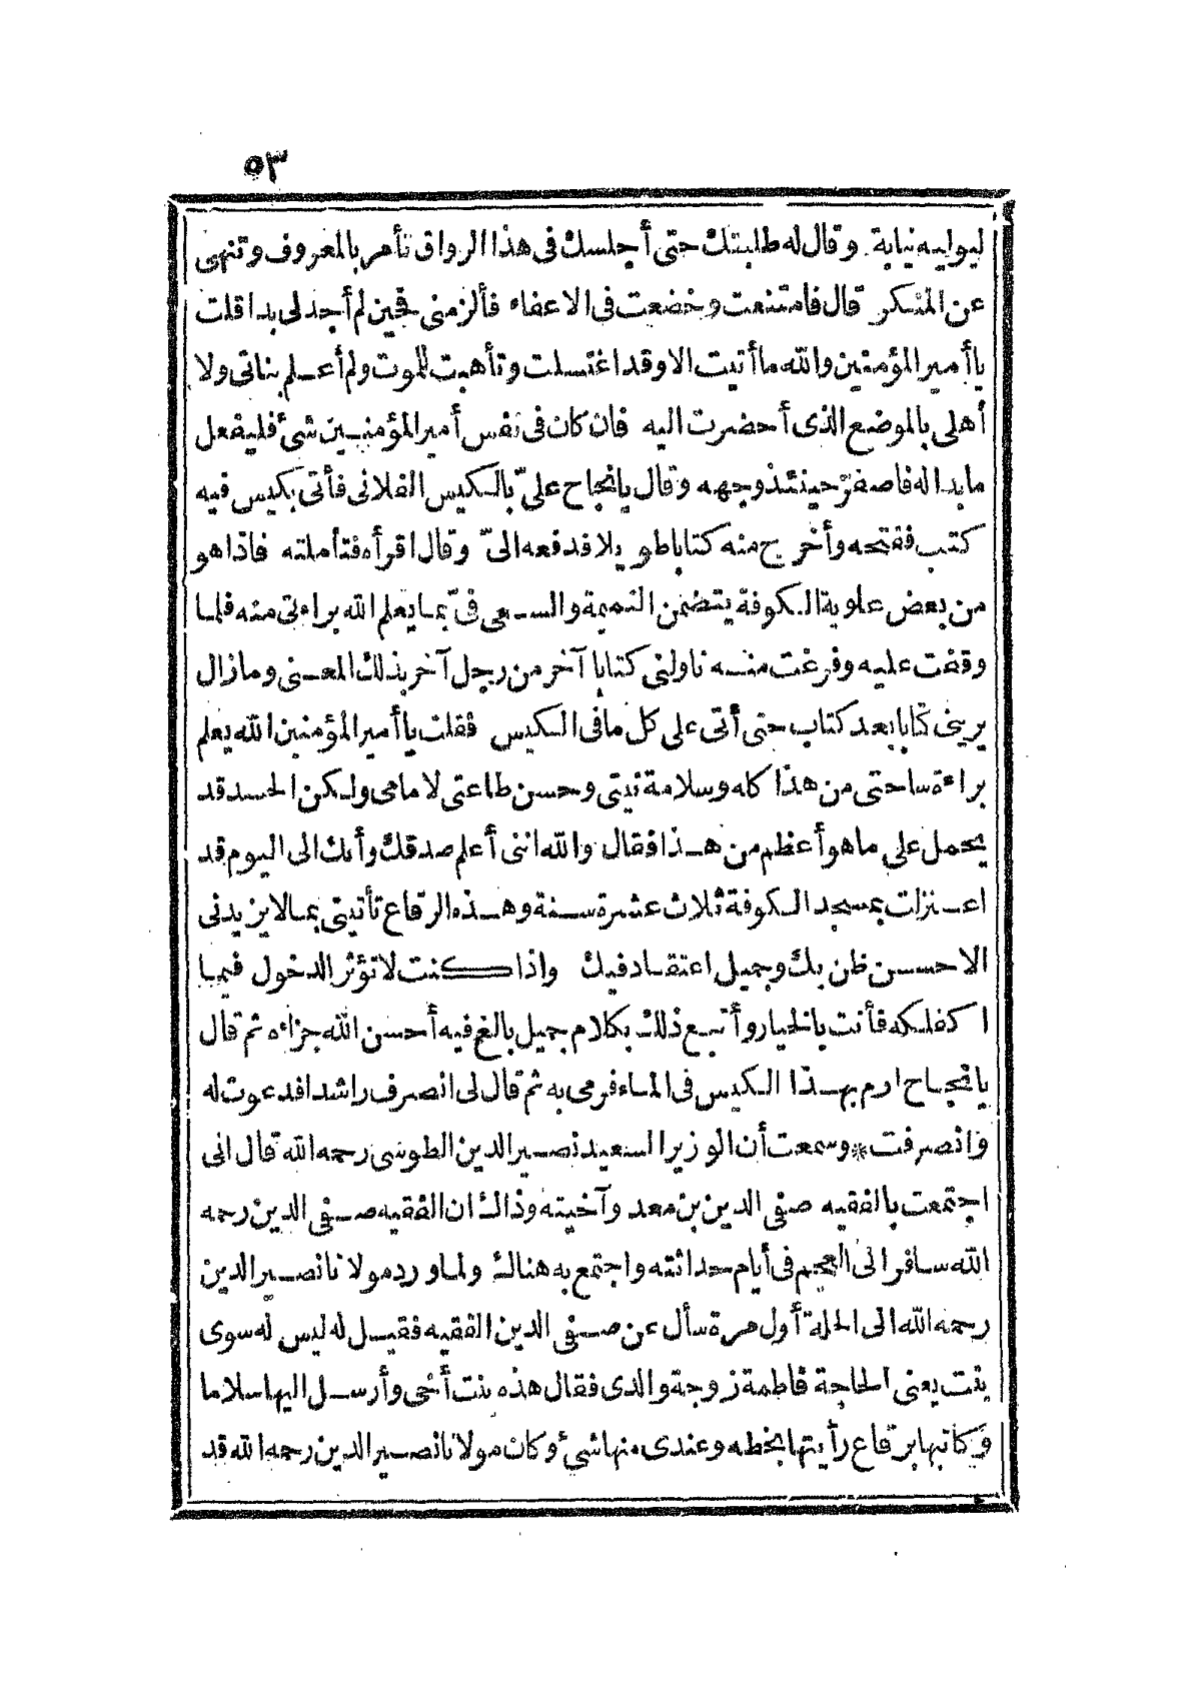 ٥٣
ليوليه نيابة وقال له طلبتك حتى أجلسك فى هذا الرواق تأمر بالمعروف وتنهى
عن المنكر قال فامتنعت وخضعت فى الاعفاء فألزمنى فحين لم أجد لى بدا قلت
يا أمير المؤمنين والله ما أتيت الا وقد اغتسلت وتأهبت للموت ولم أعلم بناتى ولا
أهلى بالموضع الذى أحضرت اليه فان كان فى نفس أمير المؤمنين شئ فليفعل
ما بدا له فاصفرّ حينئذ وجهه وقال يا نجاح علىّ بالكيس الفلانى فأتى بكيس فيه
كتب ففتحه وأخرج منه كتابا طويلا فدفعه الىّ وقال اقرأه فتأملته فاذا هو
من بعض علوية الكوفة يتضمن النميمة والسعى فىّ بما يعلم الله براءتى منه فلما
وقفت عليه وفرغت منه ناولنى كتابا آخر من رجل آخر بذلك المعنى وما زال
يرينى كتابا بعد كتاب حتى أتى على كل ما فى الكيس فقلت يا أمير المؤمنين الله يعلم
براءة ساحتى من هذا كله وسلامة نيتى وحسن طاعتى لامامى ولكن الحسد قد
يحمل على ما هو أعظم من هذا فقال والله اننى أعلم صدقك وأنك الى اليوم قد
اعتزلت بمسجد الكوفة ثلاث عشرة سنة وهذه الرقاع تأتينى بما لا يزيدنى
الا حسن ظن بك وجميل اعتقاد فيك واذا كنت لا تؤثر الدخول فيما
اكفلكه فأنت بالخيار وأتبع ذلك بكلام جميل بالغ فيه أحسن الله جزاءه ثم قال
يا نجاح ارم بهذا الكيس فى الماء فرمى به ثم قال لى انصرف راشدا فدعوت له
وانصرفت * وسمعت أن الوزير السعيد نصير الدين الطوسى رحمه الله قال انى
اجتمعت بالفقيه صفى الدين بن معد وآخيته وذاك ان الفقيه صفى الدين رحمه
الله سافر الى العجم فى أيام حداثته واجتمع به هناك ولما ورد مولانا نصير الدين
رحمه الله الى الحلة أول مرة سأل عن صفى الدين الفقيه فقيل له ليس له سوى
بنت يعنى الحاجة فاطمة زوجة والدى فقال هذه بنت أخى وأرسل اليها سلاما
وكاتبها برقاع رأيتها بخطه وعندى منها شئ وكان مولانا نصير الدين رحمه الله قد